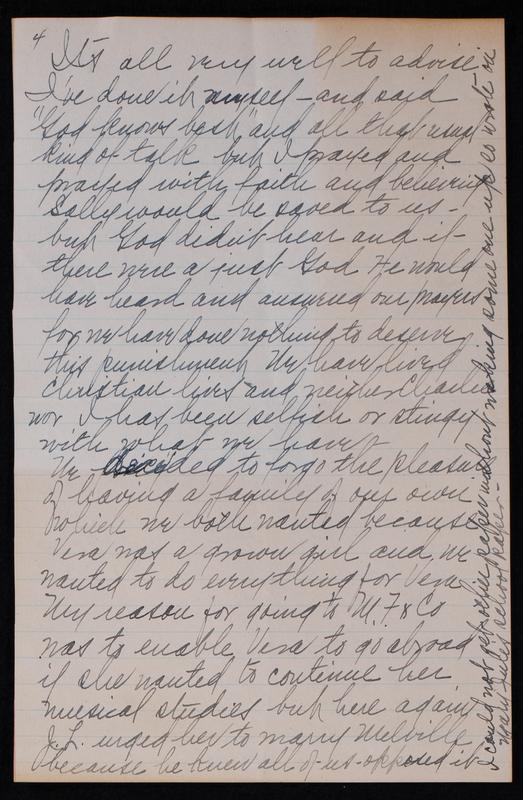 4
It's all very well to advise -
I've done it myself - and said
"God knows best" and all that usual
kind of talk but I prayed and
prayed with faith and believing
Sally would be saved to us -
but God didn't hear and if
there were a just God He would
have heard and answered our prayers
for we have done nothing to deserve
this punishment. We have lived
Christian lives and neither Charlie
nor I has been selfish or stingy
with what we have.
We decided to forgo the pleasure
of having a family of our own
which we both wanted because
Vera was a grown girl and we
wanted to do everything for Vera.
My reason for going to M. F. & Co
was to enable Vera to go abroad
if she wanted to continue her
musical studies but here again
J. L. urged her to marry Melville
because he knew all of us opposed it
I could not get other paper without waking some one up so wrote on
Mary Jule's school paper -